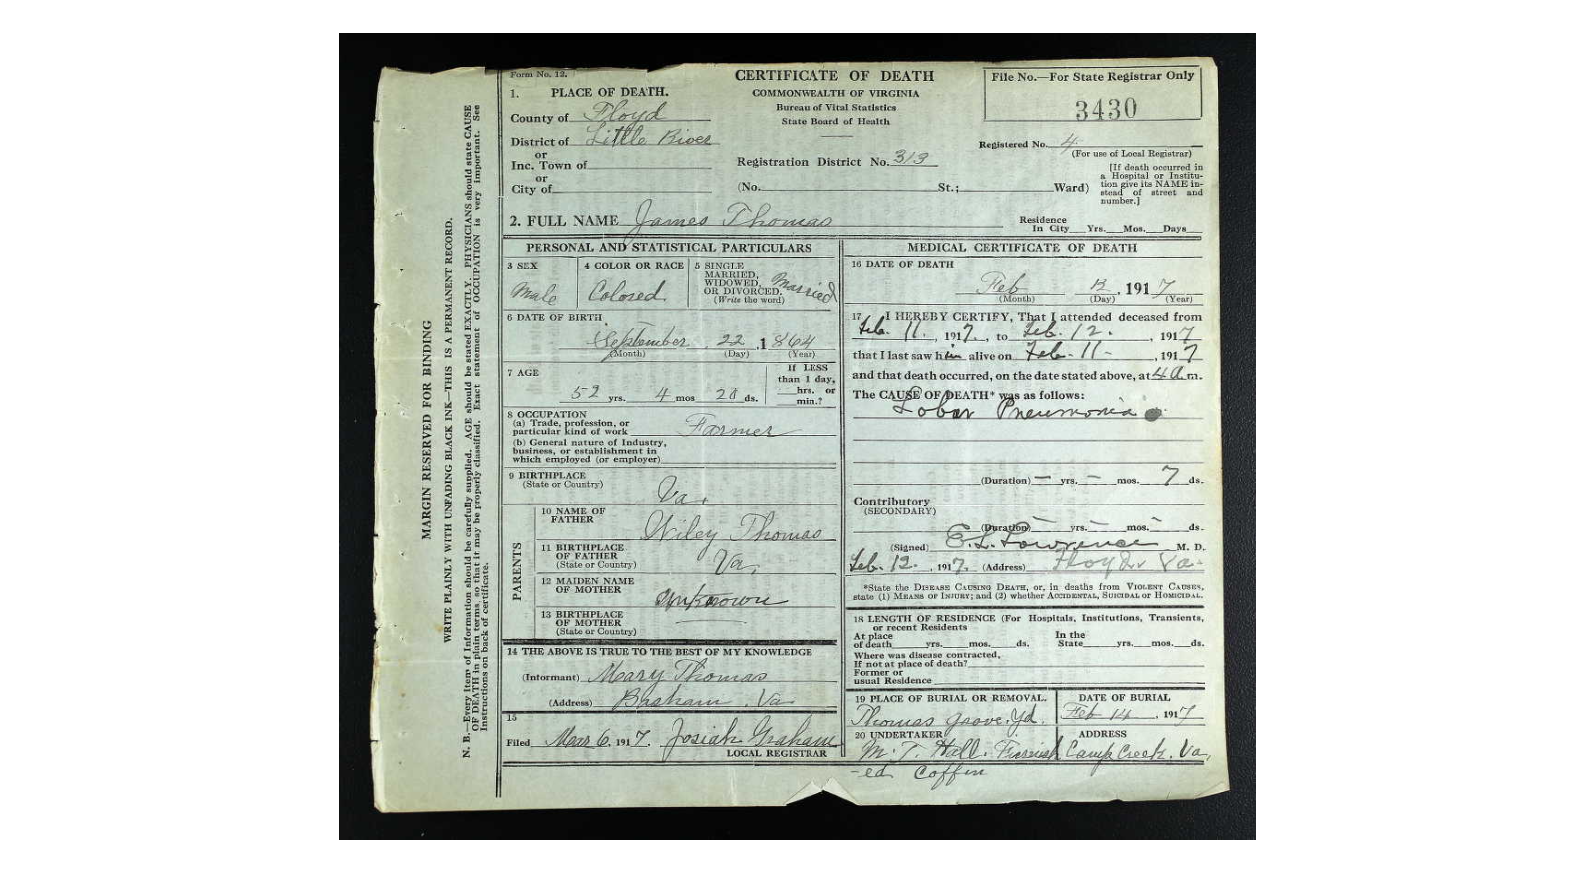 Form No. 12.
CERTIFICATE OF DEATH
COMMONWEALTH OF VIRGINIA
Bureau of Vital Statistics
State Board of Health
File No.—For State Registrar Only
3430
1. PLACE OF DEATH.
County of Floyd
District of Little River
or
Inc. Town of
or
City of
Registration District No. 313
Registered No. 4
(For use of Local Registrar)
(No. St.; Ward)
[If death occurred in
a Hospital or Institu-
tion give its NAME in-
stead of street and
number.]
2. FULL NAME James Thomas
Residence
In City Yrs. Mos. Days
PERSONAL AND STATISTICAL PARTICULARS
3 SEX
Male
4 COLOR OR RACE
Colored
5 SINGLE
MARRIED,
WIDOWED,
OR DIVORCED.
(Write the word)
Married
6 DATE OF BIRTH
September 22, 1864
(Month) (Day) (Year)
7 AGE
52 yrs. 4 mos 20 ds.
If LESS
than 1 day,
hrs. or
min.?
8 OCCUPATION
(a) Trade, profession, or
particular kind of work Farmer
(b) General nature of Industry,
business, or establishment in
which employed (or employer)
9 BIRTHPLACE
(State or Country)
Va.
PARENTS
10 NAME OF
FATHER
Wiley Thomas
11 BIRTHPLACE
OF FATHER
(State or Country)
Va.
12 MAIDEN NAME
OF MOTHER
Unknown
13 BIRTHPLACE
OF MOTHER
(State or Country)
14 THE ABOVE IS TRUE TO THE BEST OF MY KNOWLEDGE
(Informant) Mary Thomas
(Address) Basham, Va
15
Filed Mar 6, 1917. Josiah Graham
LOCAL REGISTRAR
MEDICAL CERTIFICATE OF DEATH
16 DATE OF DEATH
Feb 12, 1917
(Month) (Day) (Year)
17 I HEREBY CERTIFY, That I attended deceased from
Feb. 11, 1917, to Feb. 12, 1917
that I last saw him alive on Feb. 11 - , 1917
and that death occurred, on the date stated above, at 4 a m.
The CAUSE OF DEATH* was as follows:
Lobar Pneumonia
(Duration) — yrs. — mos. 7 ds.
Contributory
(SECONDARY)
(Duration) — yrs. — mos. - ds.
(Signed) E. L. Lawrence M. D.
Feb. 12, 1917. (Address) Floyd, Va.
*State the DISEASE CAUSING DEATH, or, in deaths from VIOLENT CAUSES,
state (1) MEANS OF INJURY; and (2) whether ACCIDENTAL, SUICIDAL or HOMICIDAL.
18 LENGTH OF RESIDENCE (For Hospitals, Institutions, Transients,
or recent Residents
At place
of death yrs. mos. ds.
In the
State yrs. mos. ds.
Where was disease contracted,
If not at place of death?
Former or
usual Residence
19 PLACE OF BURIAL OR REMOVAL.
Thomas Grove Yd.
DATE OF BURIAL
Feb 14, 1917
20 UNDERTAKER
M. T. Hall. Furnish
-ed Coffin
ADDRESS
Camp Creek. Va
MARGIN RESERVED FOR BINDING
WRITE PLAINLY WITH UNFADING BLACK INK—THIS IS A PERMANENT RECORD.
N. B.—Every Item of Information should be carefully supplied. AGE should be stated EXACTLY. PHYSICIANS should state CAUSE
OF DEATH in plain terms, so that it may be properly classified. Exact statement of OCCUPATION is very important. See
Instructions on back of certificate.